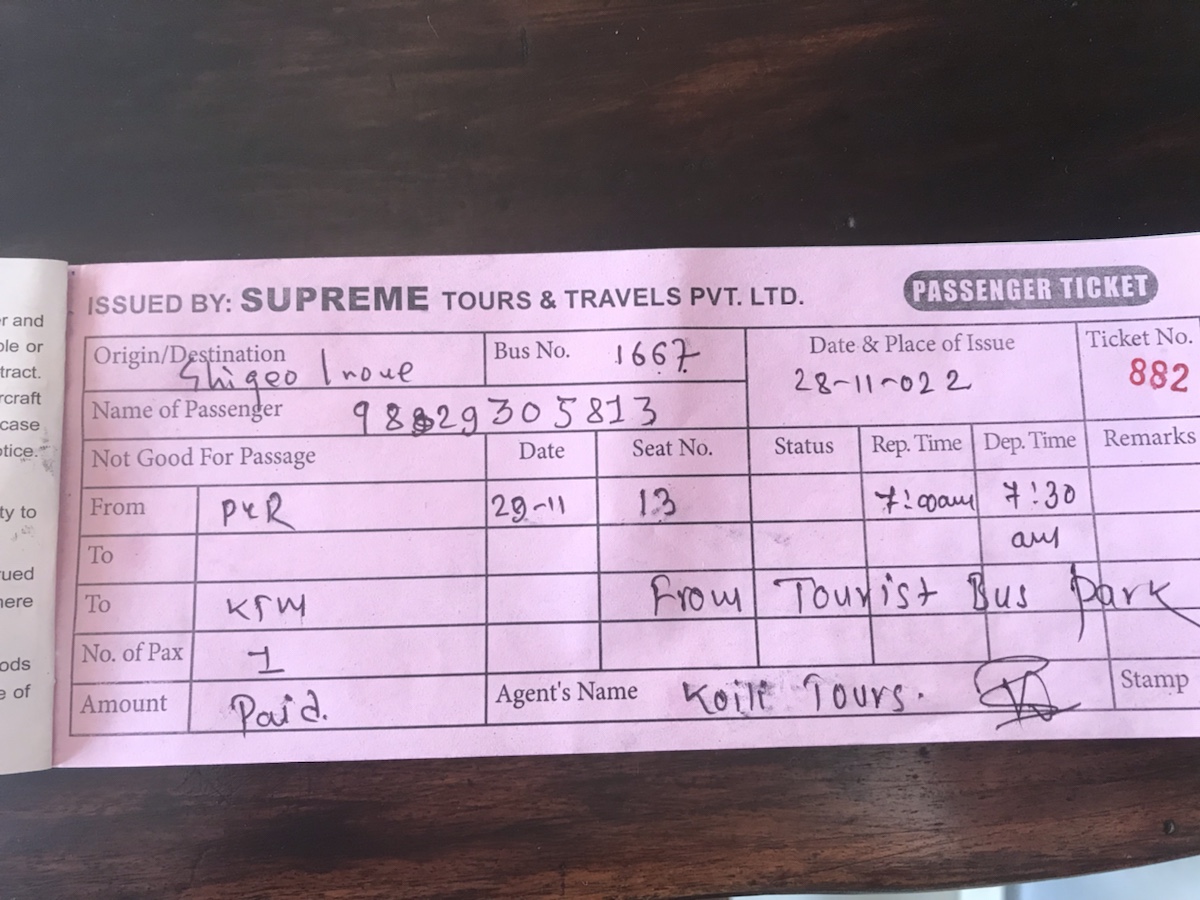 r and
ole or
tract.
rcraft
case
otice.
ty to
ued
here
ods
e of
ISSUED BY: SUPREME TOURS & TRAVELS PVT. LTD.
PASSENGER TICKET
Origin/Destination Shigeo Inoue
Bus No. 1667
Date & Place of Issue
28-11-022
Ticket No.
882
Name of Passenger 9829305813
Not Good For Passage
Date
Seat No.
Status
Rep. Time
Dep. Time
Remarks
From PKR 29-11 13 7:00am 7:30
am
To
To KTM From Tourist Bus Park
No. of Pax 1
Amount Paid.
Agent's Name Koili Tours.
Stamp